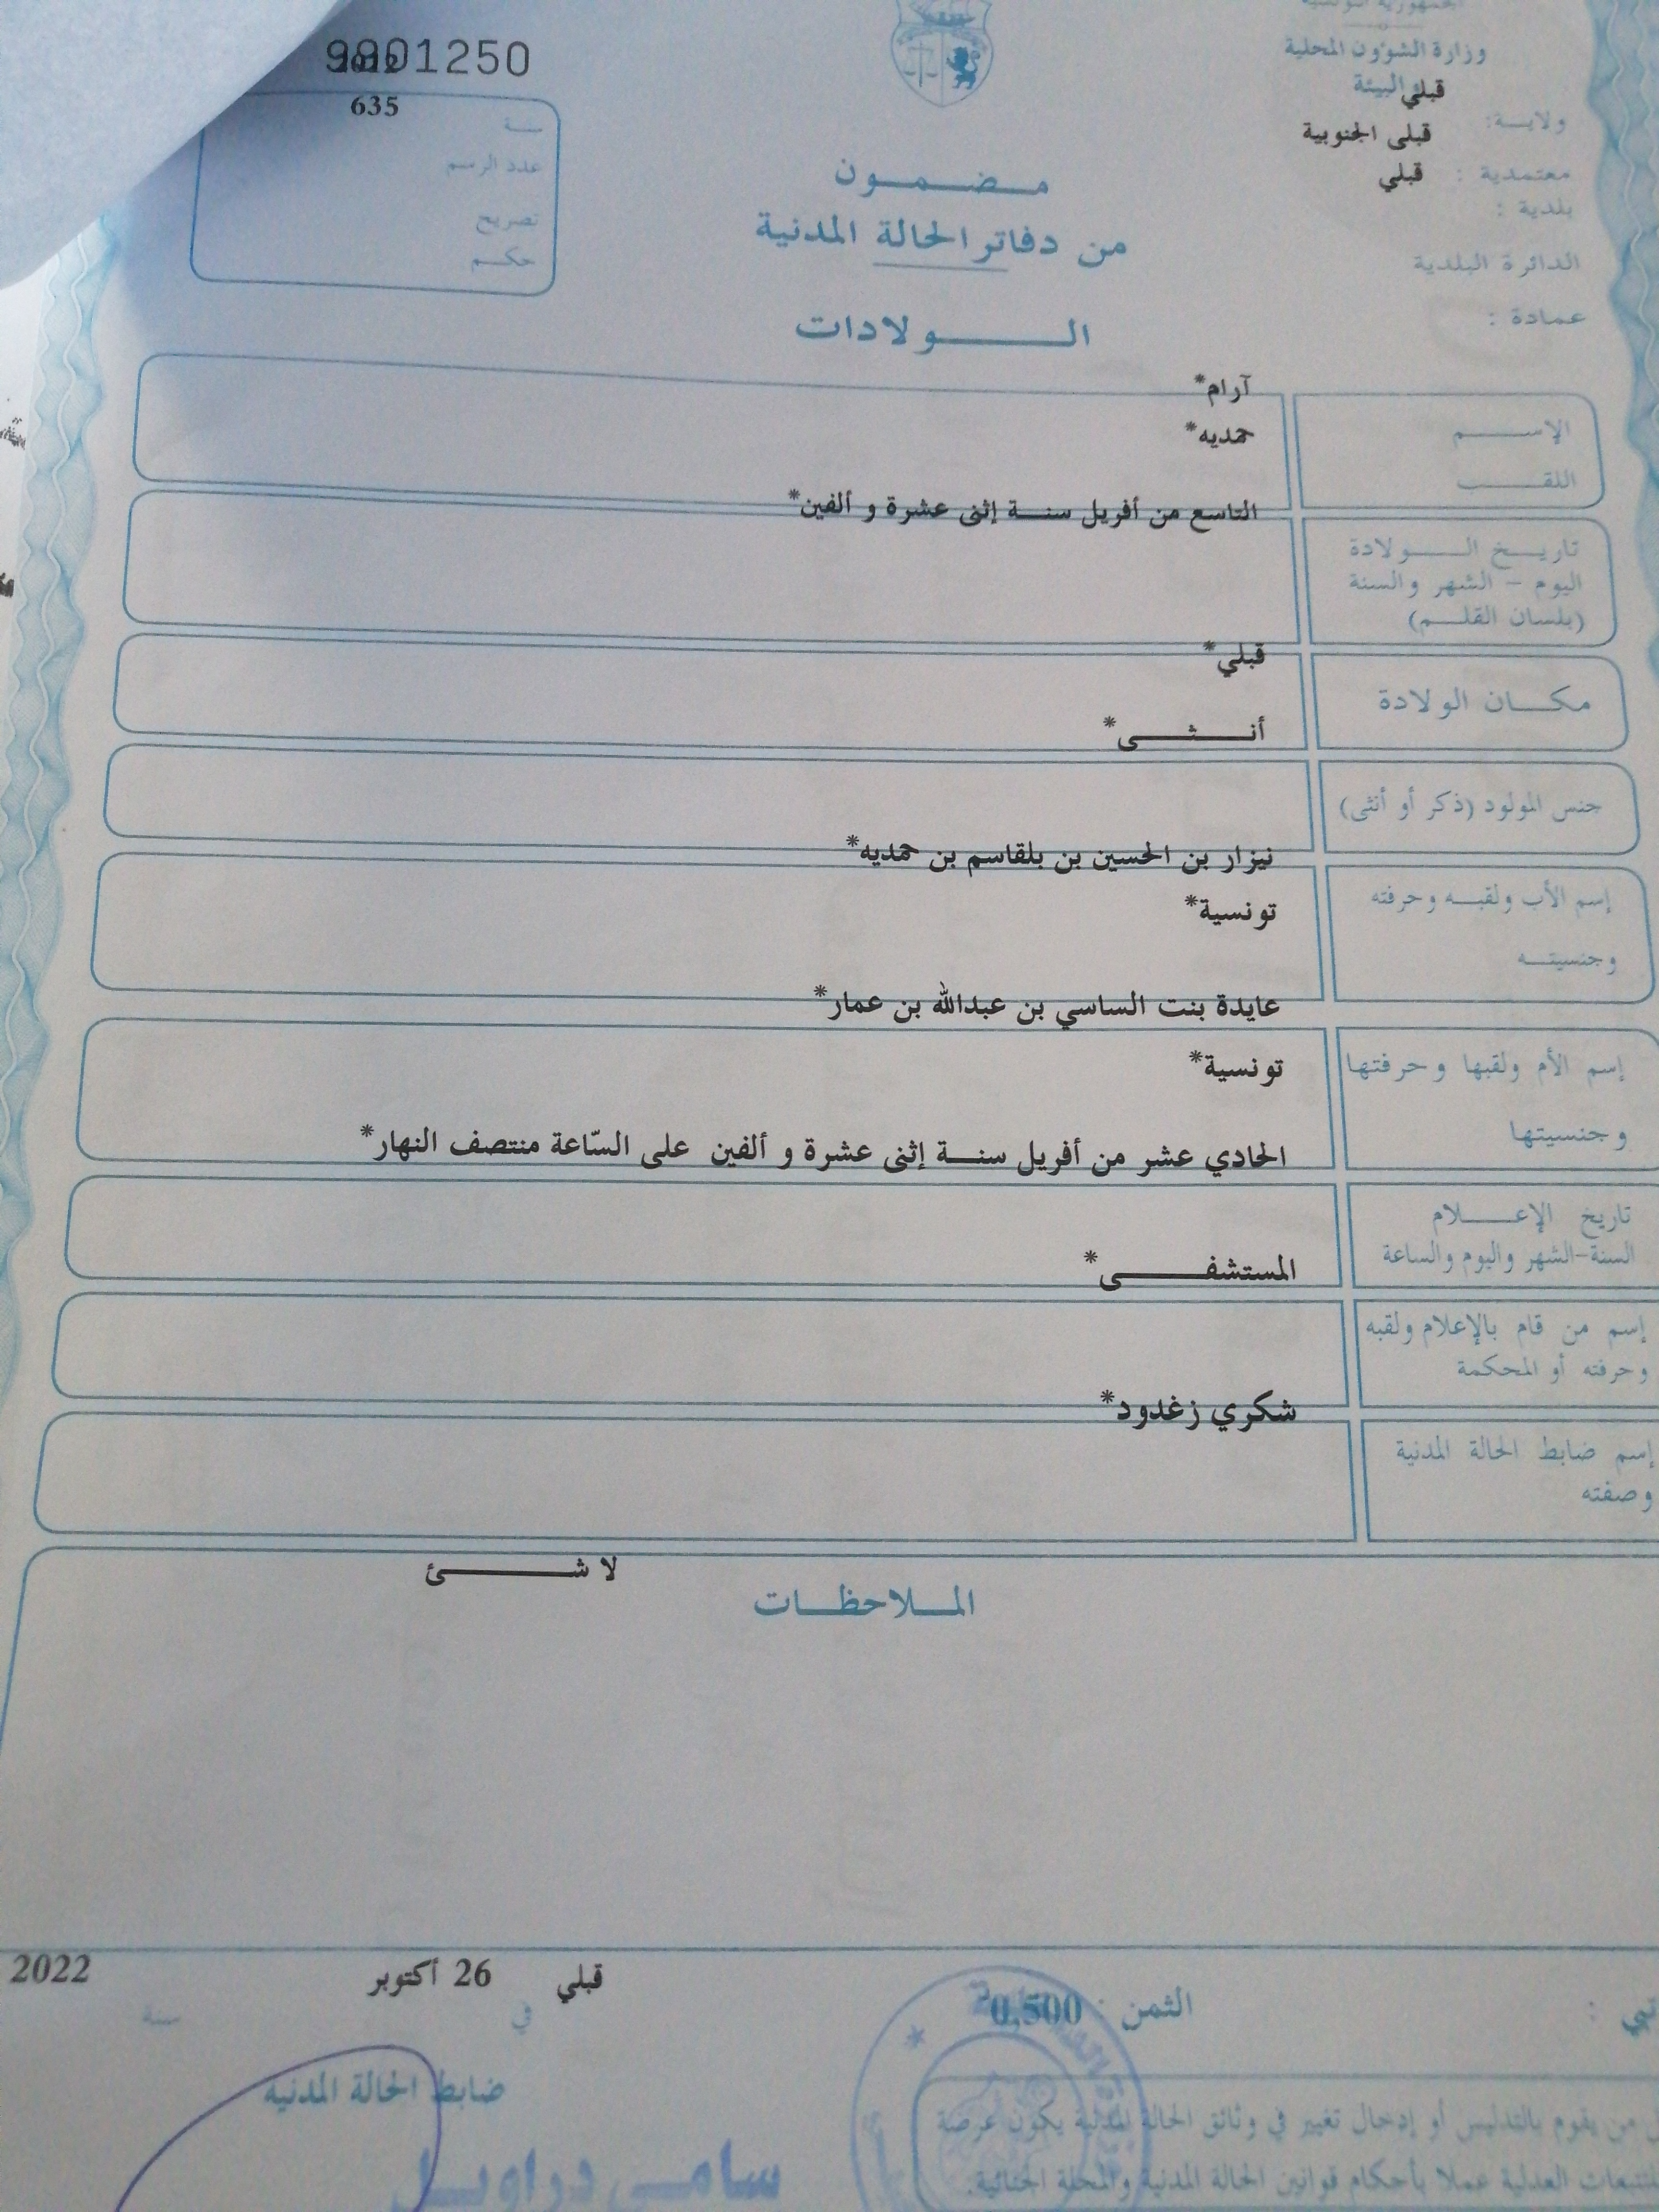 الجمهورية التونسية
وزارة الشؤون المحلية
والبيئة
ولايـــة: قبلي
معتمدية : قبلى الجنوبية
بلدية : قبلي
الدائرة البلدية
عمادة :
9901250
سنـــة 2012
عدد الرسم 635
تصريح
حكــم
مــضــمــون
من دفاتر الحالة المدنية
الــــولادات
الإســـــم آرام*
اللقـــــب حمديه*
تاريــخ الـــــولادة التاسع من أفريل سنــة إثنى عشرة و ألفين*
اليوم - الشهر والسنة
(بلسان القلـــم)
مكــــان الولادة قبلي*
جنس المولود (ذكر أو أنثى) أنـــــثـــــى*
إسم الأب ولقبــه وحرفته نيزار بن الحسين بن بلقاسم بن حمديه*
وجنسيتــه تونسية*
إسم الأم ولقبها وحرفتها عايدة بنت الساسي بن عبدالله بن عمار*
وجنسيتها تونسية*
تاريخ الإعـــــلام الحادي عشر من أفريل سنــة إثنى عشرة و ألفين على السّاعة منتصف النهار*
السنة-الشهر واليوم والساعة
إسم من قام بالإعلام ولقبه المستشفــــــى*
وحرفته أو المحكمة
إسم ضابط الحالة المدنية شكري زغدود*
وصفته
المــلاحظــات
لا شـــــــئ
الثمن : 0,500
قبلي في 26 أكتوبر سنة 2022
ضابط الحالة المدنية
سامي دراويل
من يقوم بالتدليس أو إدخال تغيير في وثائق الحالة المدنية يكون عرضة
للتتبعات العدلية عملا بأحكام قوانين الحالة المدنية والمجلة الجنائية.